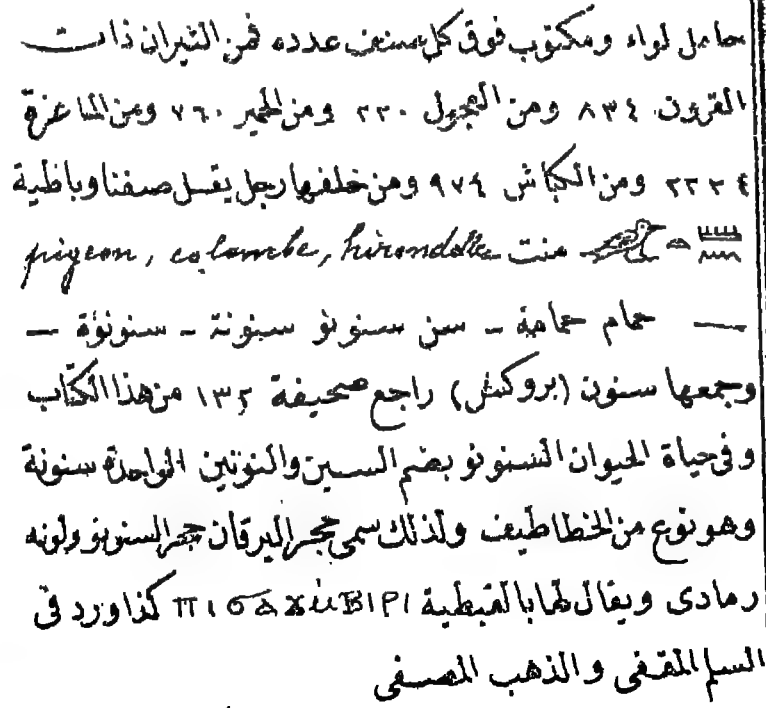 حامل لواء ومكتوب فوق كل صنف عدده فمن الثيران ذات
القرون ٨٣٤ ومن العجول ٢٢٠ ومن الحمير ٧٦٠ ومن الماعزة
٢٢٣٤ ومن الكباش ٩٧٤ ومن خلفها رجل يقـل صفنا وباظية
منت pigeon, colombe, hirondelle
— حمام حمامة - سن سنونو سنونة - سنونوة —
وجمعها سنون (بروكش) راجع صحيفة ١٣٢ من هذا الكتاب
وفى حياة الحيوان السنونو بضم السين والنونين الواحدة سنونة
وهو نوع من الخطاطيف ولذلك سمى حجر اليرقان حجر السنونو ولونه
رمادى ويقال لها بالقبطية كذا ورد فى
السلم المقفى والذهب المصفى